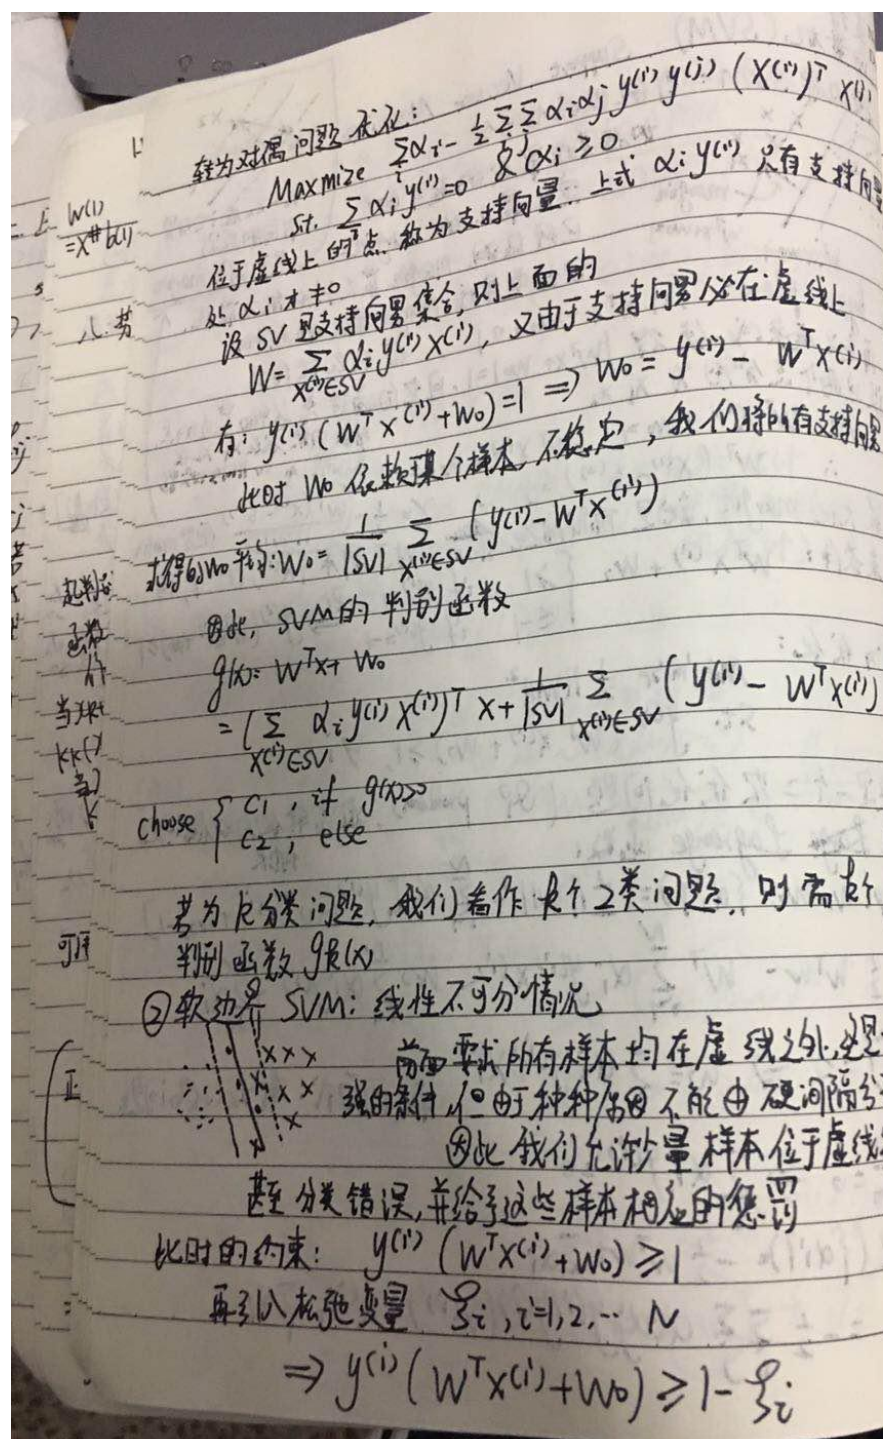 转为对偶问题优化:
Maxmize ∑ᵢαᵢ - 1/2 ∑ᵢ∑ⱼ αᵢαⱼ y⁽ⁱ⁾ y⁽ʲ⁾ (X⁽ⁱ⁾)ᵀ X⁽ʲ⁾
st. ∑ᵢ αᵢ y⁽ⁱ⁾=0 & αᵢ ≥ 0
位于虚线上的点,称为支持向量. 上式 αᵢ y⁽ⁱ⁾ 只有支持向量
处 αᵢ 才 ≠0
设 SV 是支持向量集合,则上面的
W= ∑_{X⁽ⁱ⁾∈SV} αᵢ y⁽ⁱ⁾ X⁽ⁱ⁾, 又由于支持向量必在虚线上
有: y⁽ⁱ⁾ (Wᵀ X⁽ⁱ⁾+W₀)=1 ⇒ W₀ = y⁽ⁱ⁾ - WᵀX⁽ⁱ⁾
此时 W₀ 依赖某个样本,不稳定,我们将所有支持向量
求得的W₀平均: W₀ = 1/|SV| ∑_{X⁽ⁱ⁾∈SV} (y⁽ⁱ⁾-WᵀX⁽ⁱ⁾)
因此, SVM的判别函数
g(x)= Wᵀx+ W₀
= (∑_{X⁽ⁱ⁾∈SV} αᵢ y⁽ⁱ⁾ X⁽ⁱ⁾)ᵀ X + 1/|SV| ∑_{X⁽ⁱ⁾∈SV} (y⁽ⁱ⁾ - WᵀX⁽ⁱ⁾)
choose { C₁, if g(x)>0
C₂, else
若为k分类问题,我们看作k个2类问题,则需k个
判别函数 gk(x)
②软边界 SVM: 线性不可分情况
前面要求所有样本均在虚线之外,这是
强的条件,但由于种种原因不能由硬间隔分
因此我们允许少量样本位于虚线
甚至分类错误,并给予这些样本相应的惩罚
此时的约束: y⁽ⁱ⁾ (WᵀX⁽ⁱ⁾+W₀) ≥ 1
再引入松弛变量 ξᵢ, i=1,2,… N
⇒ y⁽ⁱ⁾ (WᵀX⁽ⁱ⁾+W₀) ≥ 1- ξᵢ